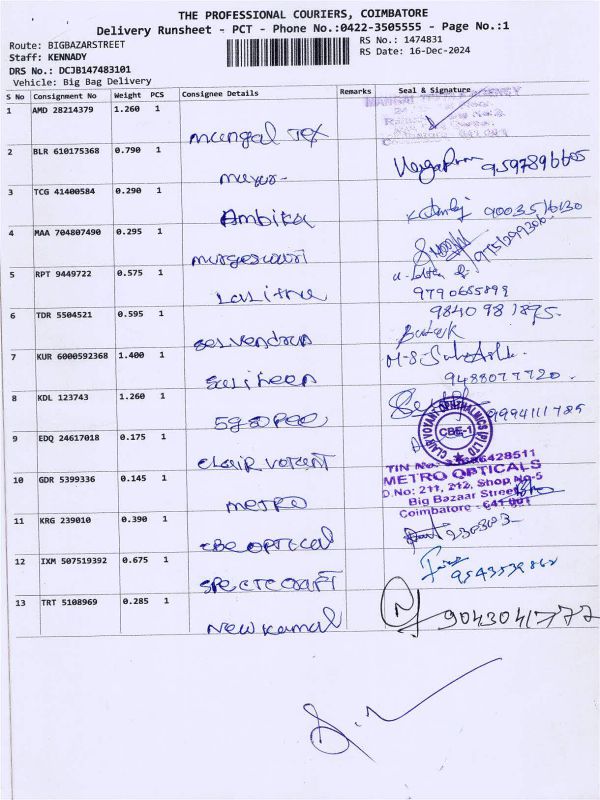 THE PROFESSIONAL COURIERS, COIMBATORE
Delivery Runsheet - PCT - Phone No.:0422-3505555 - Page No.:1
Route: BIGBAZARSTREET RS No.: 1474831
Staff: KENNADY RS Date: 16-Dec-2024
DRS No.: DCJB147483101
Vehicle: Big Bag Delivery
S No Consignment No Weight PCS Consignee Details Remarks Seal & Signature
1 AMD 28214379 1.260 1
mungal Tex
2 BLR 610175368 0.790 1
9597896605
3 TCG 41400584 0.290 1
Ambika
4 MAA 704807490 0.295 1
5 RPT 9449722 0.575 1
Lalitha
9790655899
6 TDR 5504521 0.595 1 9840981895
7 KUR 6000592368 1.400 1
9488077720
8 KDL 123743 1.260 1
9994111785
CLAIR VOYANT OPHTHALMICS (P) LTD
CBE-1
9 EDQ 24617018 0.175 1
clair voyant
10 GDR 5399336 0.145 1
METRO OPTICALS
D.No: 211, 212, Shop No-5
Big Bazaar Street
Coimbatore - 641 001
metro
11 KRG 239010 0.390 1
CBE OPTICAL
12 IXM 507519392 0.675 1
9543539862
SPECTCRAFT
13 TRT 5108969 0.285 1
N 9043041777
New Kamal